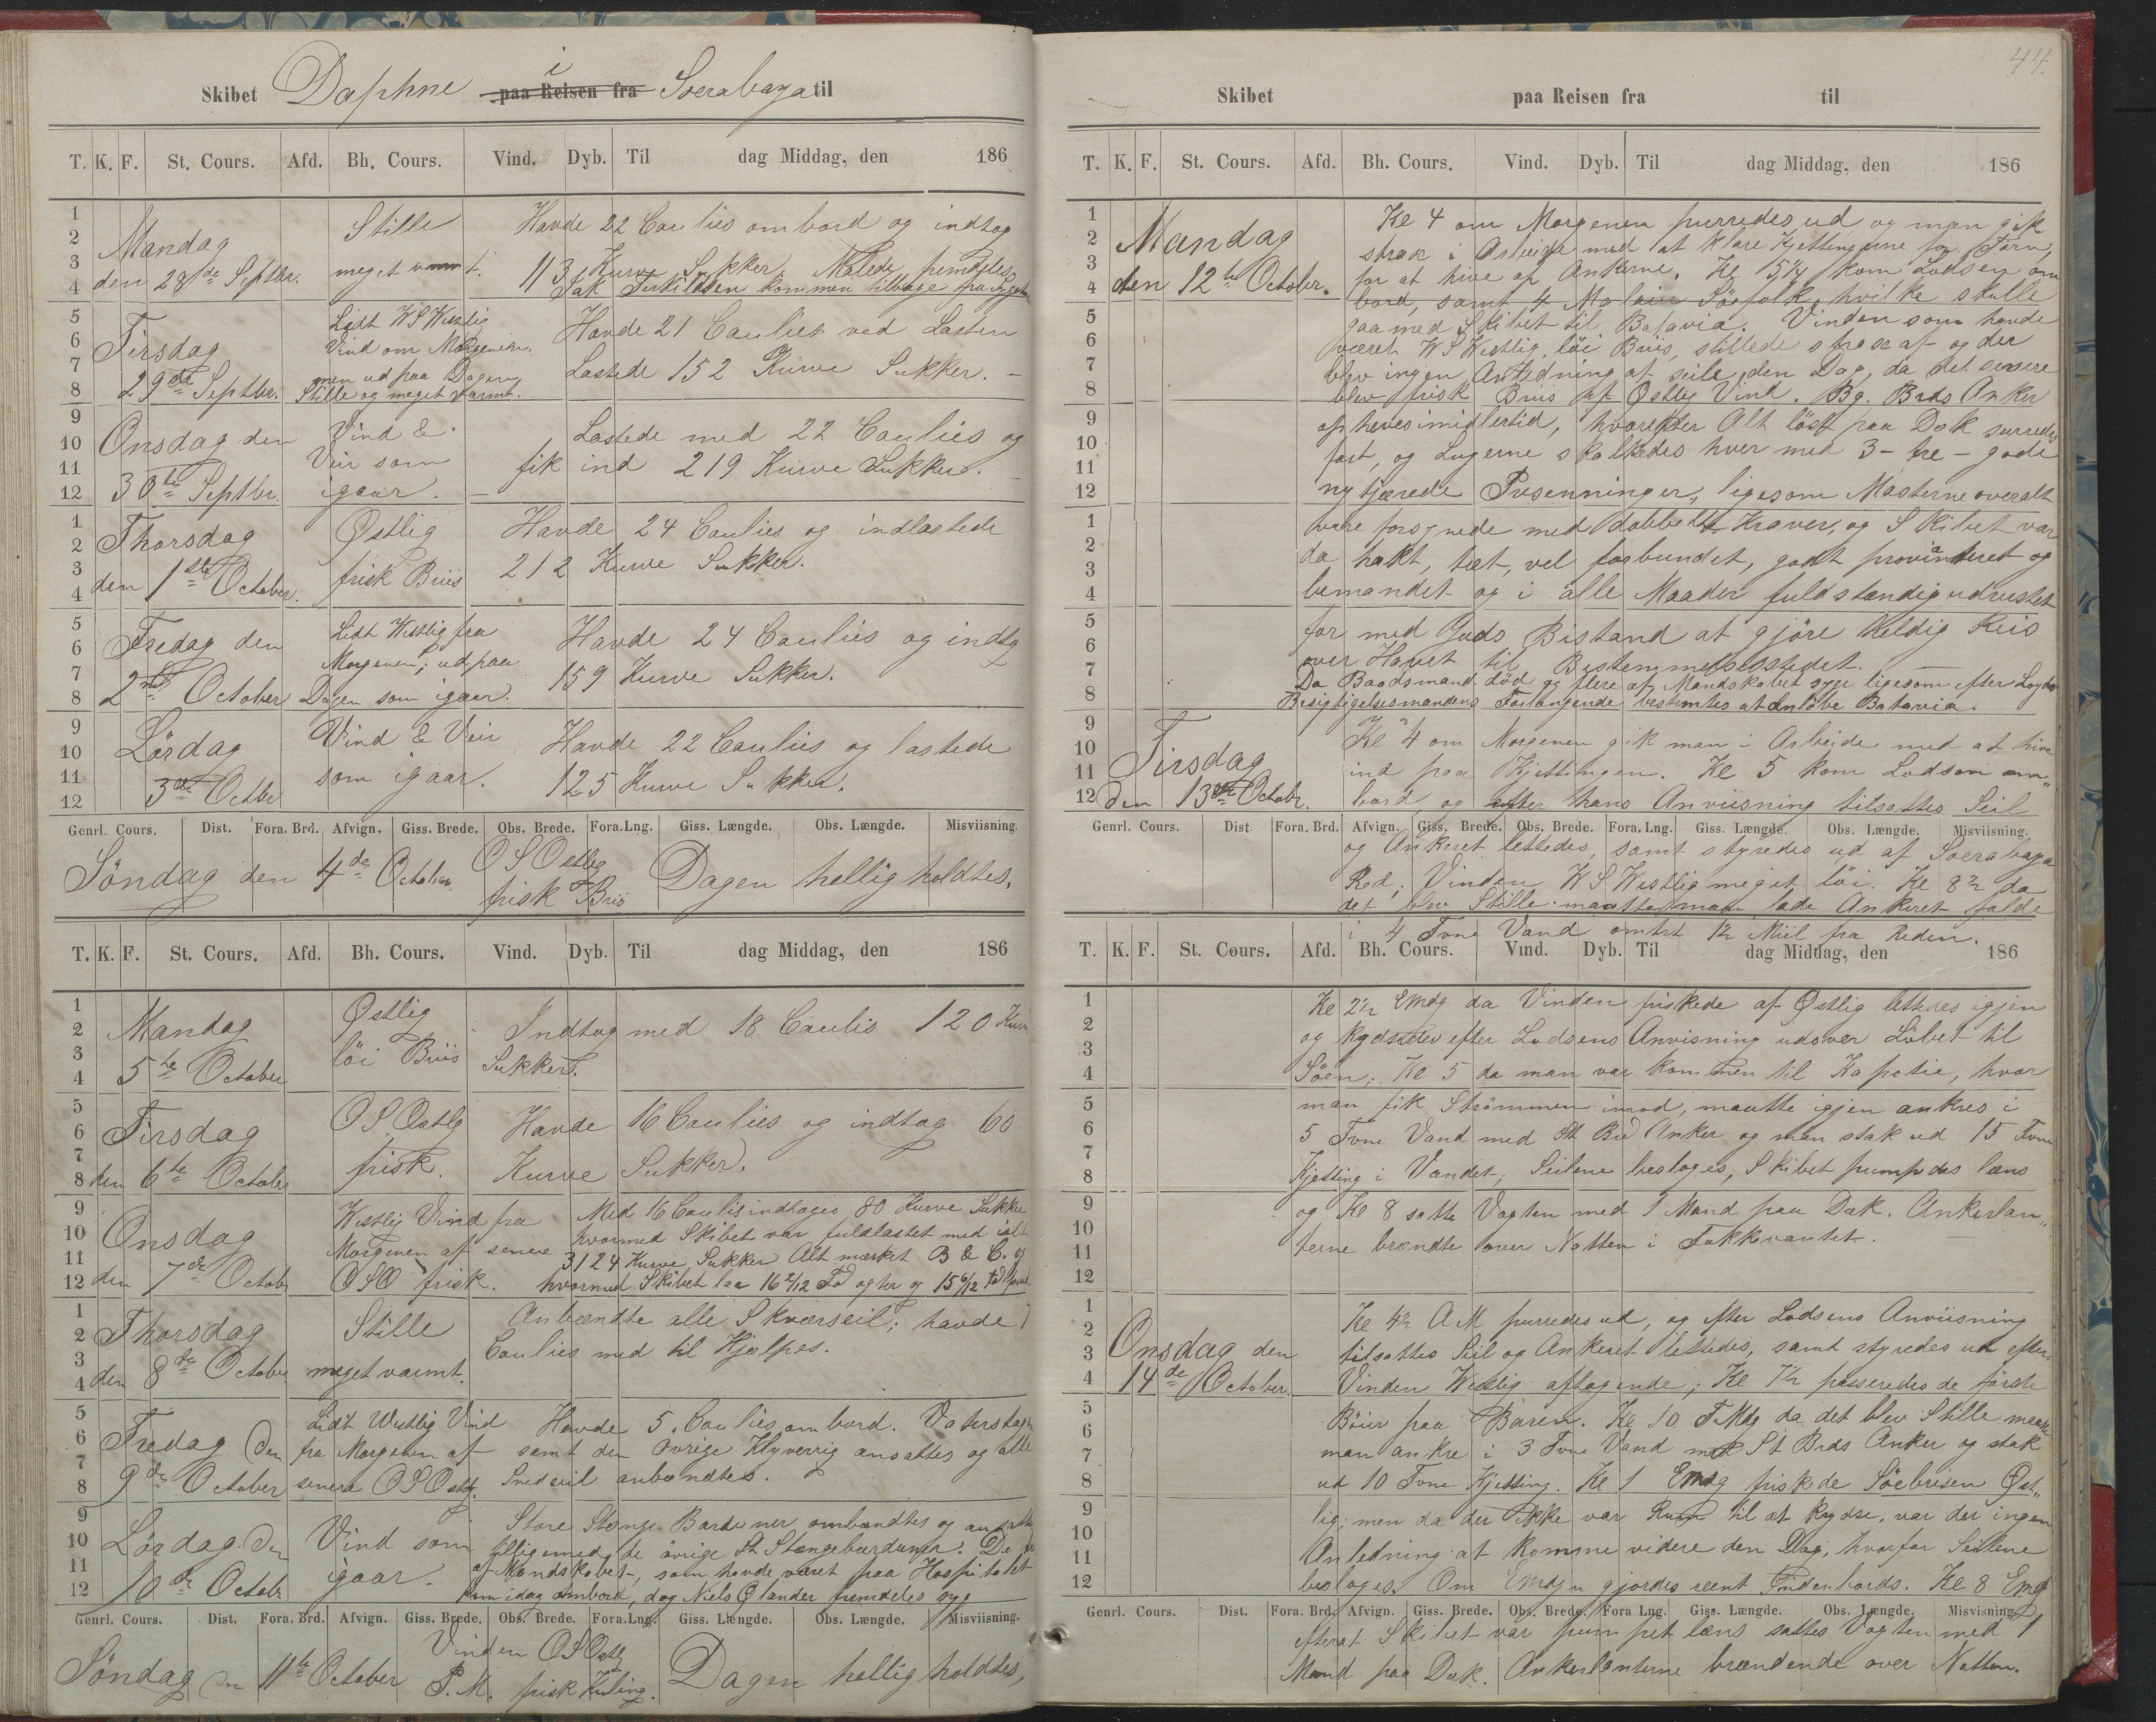 Skibet Daphne i paa Reisen fra Soerabaya til
T. K. F. St. Cours. Afd. Bh. Cours. Vind. Dyb. Til dag Middag, den 186
Mandag
den 28de Septbr.
Stille
meget varmt.
Havde 22 Caulies ombord og indtog
113 Kurve Sukker. Malede fremdeles
Jak Terkildsen kommen tilbage fra
Tirsdag
29de Septbr.
Lidt WSWestlig
Vind om Morgenen.
men ud paa Dagen
Stille og meget varmt.
Havde 21 Caulies ved Lasten
Lastede 152 Kurve Sukker. –
Onsdag den
30te Septbr.
Vind &
Veir som
igaar. –
Lastede med 22 Caulies og
fik ind 219 Kurve Sukker. –
Thorsdag
den 1ste October.
Østlig
frisk Briis
Havde 24 Caulies og indlastede
212 Kurve Sukker.
Fredag den
2den October
Lidt Westlig fra
Morgenen; ud paa
Dagen som igaar.
Havde 24 Caulies og indtog
159 Kurve Sukker.
Lördag
3die Octbr
Vind & Veir
som igaar.
Havde 22 Caulies og lastede
125 Kurve Sukker.
Genrl. Cours. Dist. Fora. Brd. Afvign. Giss. Brede. Obs. Brede. Fora. Lng. Giss. Længde. Obs. Længde. Misviisning.
Söndag den 4de October. OSOstlig
frisk Briis
Dagen helligholdtes.
T. K. F. St. Cours. Afd. Bh. Cours. Vind. Dyb. Til dag Middag, den 186
Mandag
5te October
Østlig
löi Briis
Indtog med 18 Caulis 120 Kurve
Sukker.
Tirsdag
den 6te October
OSOstlg
frisk.
Havde 16 Caulies og indtog 60
Kurve Sukker.
Onsdag
den 7de Octobr
Westlig Vind fra
Morgenen af senere
OSO frisk.
Med 16 Caulis indtoges 80 Kurve Sukker
hvormed Skibet var fuldlastet med ialt
3124 Kurve Sukker Alt mærket B & C. og
hvormed Skibet laa 16 2/12 Fod agter og 15 6/12 fod
Thorsdag
den 8de October
Stille
meget varmt.
Anbændte alle Skværseil; havde 7
Caulies med til Hjælpes.
Fredag den
9de October
Lidt Westlig Vind
fra Morgenen af
senere OSOstlg.
Havde 5 Caulies ombord. Vaterstag
samt den övrige Klyverrig ansattes og alle
Snedseil anbændtes.
Lördag den
10de Octobr
Vind som
igaar.
Store Stænge Barduner ombændtes og ansattes
tilligemed de övrige St Stængebarduner. De
af Mandskabet, som havde været paa Hospitalet
kom idag ombord, dog Niels Ølander fremdeles syg
Genrl. Cours. Dist. Fora. Brd. Afvign. Giss. Brede. Obs. Brede. Fora.Lng. Giss. Længde. Obs. Længde. Misviisning.
Söndag den 11te October
Vinden OSOstlg
P. M. frisk Kuling.
Dagen helligholdtes,
44.
Skibet paa Reisen fra til
T. K. F. St. Cours. Afd. Bh. Cours. Vind. Dyb. Til dag Middag, den 186
Mandag
den 12te October.
Kl 4 om Morgenen purredes ud og man gik
strax i Arbeide med at klare Kjettingerne for Törn,
for at hive op Ankerne. Kl 5 1/4 kom Lodsen om
bord, samt 4 Malaier Söfolk, hvilke skulle
gaa med Skibet til Batavia. Vinden som havde
været WSWestlig, löi Briis, stillede strax af og der
blev ingen Anledning at seile den Dag, da det senere
blev frisk Briis af Østlig Vind. Bg. Brds Anker
ophevesimidlertid, hvorefter Alt löst paa Dæk surredes
fast, og Lugerne skalkedes hver med 3 – tre – gode
nytjærede Presenninger, ligesom Masterne overalt
vare forsynede med dobbelt Kraver, og Skibet var
da tæt, vel forbundet, godt provianteret og
bemandet og i alle Maader fuldstændig udrustet
for med Guds Bistand at gjöre Heldig Reis
over Havet til Bestemmelsesstedet. –
Da Baadsmand död og flere af Mandskabet syge ligesom efter Loyds
Besigtigelsesmandens Forlangende bestemtes at anlöbe Batavia.
Tirsdag
den 13de Octobr.
Kl 4 om Morgenen gik man i Arbeide med at hive
ind paa Kjettingen. Kl 5 kom Lodsen om
bord og efter hans Anviisning tilsattes Seil
Genrl. Cours. Dist. Fora. Brd. Afvign. Giss. Brede. Obs. Brede. Fora. Lng. Giss. Længde. Obs. Længde. Misviisning.
og Ankeret lettedes, samt styredes ud af Soerabaya
Red; Vinden WSWestlig meget löi. Kl 8 1/2 da
det blev Stille maatte man lade Ankeret falde
i 4 Fvne Vand omtrt 1 1/2 Miil fra Reden.
T. K. F. St. Cours. Afd. Bh. Cours. Vind. Dyb. Til dag Middag, den 186
Kl 2 1/2 EMdg da Vinden friskede af Østlig lettedes igjen
og efter Lodsens Anvisning udover Löbet til
Söen; Kl 5 da man var kommen til Kapotie, hvor
man fik Strömmen imod, maatte igjen ankres i
5 Fvne Vand med St Brd Anker og man stak ud 15 Fvne
Kjetting i Vandet; Seilene besloges, Skibet pumpedes læns
og Kl 8 satte Vagten med 1 Mand paa Dæk. Ankerlan„
terne brændte over Natten i Fokkevantet.
Onsdag den
14de October.
Kl 4 1/2 A M purredes ud, og efter Lodsens Anviisning
tilsattes Seil og Ankeret lettedes, samt styredes ud efter.
Vinden Westlig aftagende; Kl 7 1/2 passeredes de förste
Böier paa Baren. Kl 10 F.Mdg da det blev Stille maatte
man ankre i 3 Fvne Vand med St Brds Anker og stak
ud 10 Fvne Kjetting. Kl 1 EMdg friskede Söebrisen Øst„
lig; men da der ikke var Rum til at krydse, var der ingen
Anledning at komme videre den Dag, hvorfor Seilene
besloges. Om EMdgn gjordes reent Indenbords. Kl 8 EMd
Genrl. Cours. Dist. Fora. Brd. Afvign. Giss. Brede. Obs. Brede. Fora Lng. Giss. Længde. Obs. Længde. Misvisning.
efterat Skibet var pumpet læns sattes Vagten med 1
Mand paa Dæk. Ankerlanterne brændende over Natten.